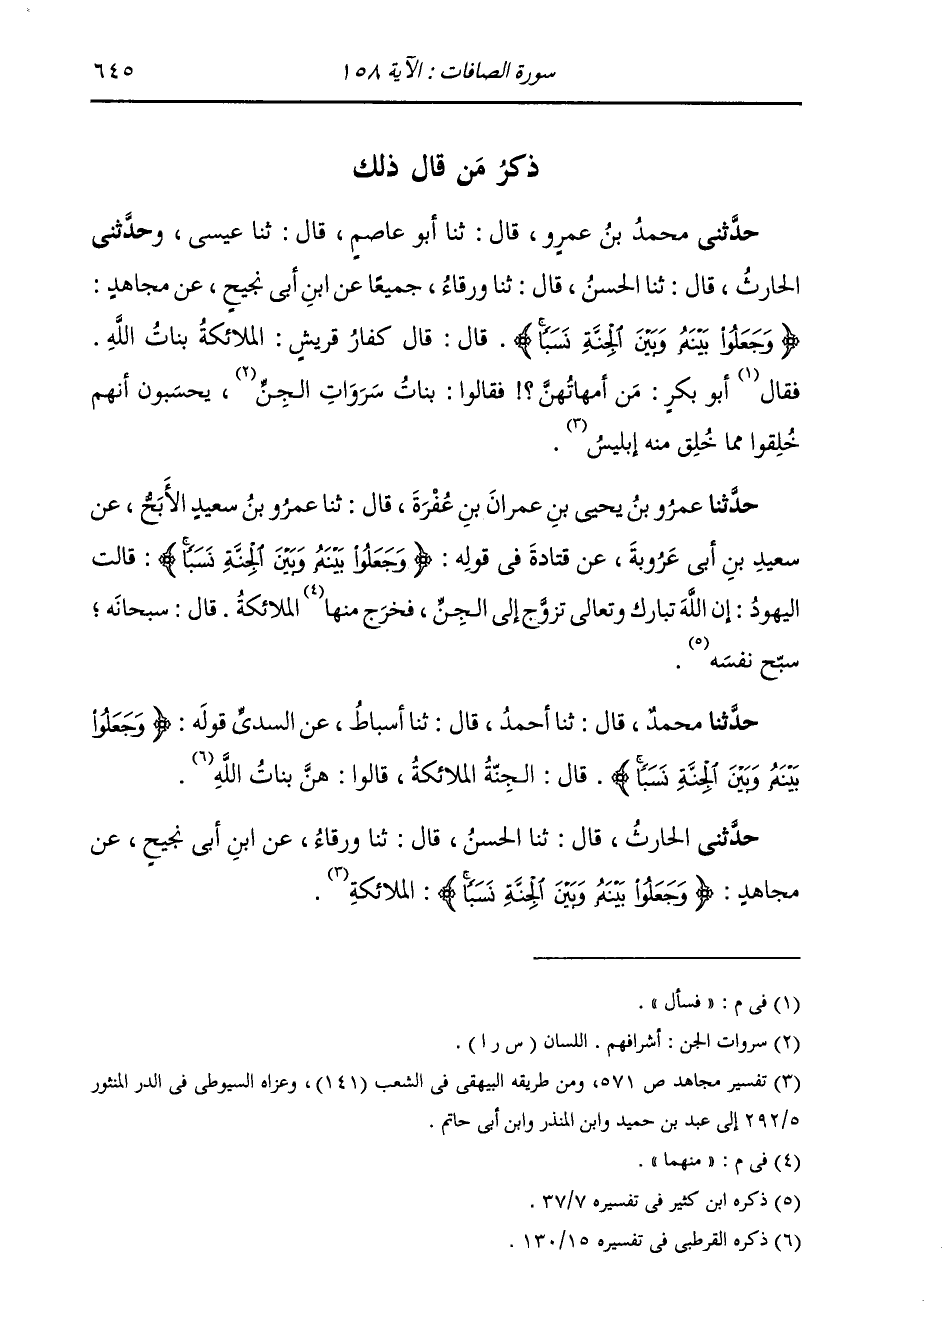 سورة الصافات : الآية ١٥٨ ٦٤٥
ذكرُ مَن قال ذلك
حدَّثنى محمدُ بنُ عمرٍو ، قال : ثنا أبو عاصمٍ ، قال : ثنا عيسى ، وحدَّثنى
الحارثُ ، قال : ثنا الحسنُ ، قال : ثنا ورقاءُ ، جميعًا عن ابنِ أبى نجيحٍ ، عن مجاهدٍ :
﴿ وَجَعَلُوا۟ بَيْنَهُۥ وَبَيْنَ ٱلْجِنَّةِ نَسَبًاۚ ﴾ . قال : قال كفارُ قريشٍ : الملائكةُ بناتُ اللَّهِ .
فقال(١) أبو بكرٍ : مَن أمهاتُهنَّ ؟! فقالوا : بناتُ سَرَواتِ الجنِّ(٢) ، يحسَبون أنهم
خُلِقوا مما خُلِق منه إبليسُ(٣) .
حدَّثنا عمرُو بنُ يحيى بنِ عمرانَ بنِ عُفْرَةَ ، قال : ثنا عمرُو بنُ سعيدٍ الأَبَحُّ ، عن
سعيدِ بنِ أبى عَرُوبةَ ، عن قتادةَ فى قولِه : ﴿ وَجَعَلُوا۟ بَيْنَهُۥ وَبَيْنَ ٱلْجِنَّةِ نَسَبًاۚ ﴾ : قالت
اليهودُ : إن اللَّهَ تبارك وتعالى تزوَّج إلى الجنِّ ، فخرَج منها(٤) الملائكةُ . قال : سبحانَه ؛
سبّح نفسَه(٥) .
حدَّثنا محمدٌ ، قال : ثنا أحمدُ ، قال : ثنا أسباطُ ، عن السدىِّ قولَه : ﴿ وَجَعَلُوا۟
بَيْنَهُۥ وَبَيْنَ ٱلْجِنَّةِ نَسَبًاۚ ﴾ . قال : الجِنّةُ الملائكةُ ، قالوا : هنَّ بناتُ اللَّهِ(٦) .
حدَّثنى الحارثُ ، قال : ثنا الحسنُ ، قال : ثنا ورقاءُ ، عن ابنِ أبى نجيحٍ ، عن
مجاهدٍ : ﴿ وَجَعَلُوا۟ بَيْنَهُۥ وَبَيْنَ ٱلْجِنَّةِ نَسَبًاۚ ﴾ : الملائكةِ(٣) .
(١) فى م : « فسأل » .
(٢) سروات الجن : أشرافهم . اللسان ( س ر ا ) .
(٣) تفسير مجاهد ص ٥٧١، ومن طريقه البيهقى فى الشعب (١٤١) ، وعزاه السيوطى فى الدر المنثور
٢٩٢/٥ إلى عبد بن حميد وابن المنذر وابن أبى حاتم .
(٤) فى م : « منهما » .
(٥) ذكره ابن كثير فى تفسيره ٣٧/٧ .
(٦) ذكره القرطبى فى تفسيره ١٣٠/١٥ .